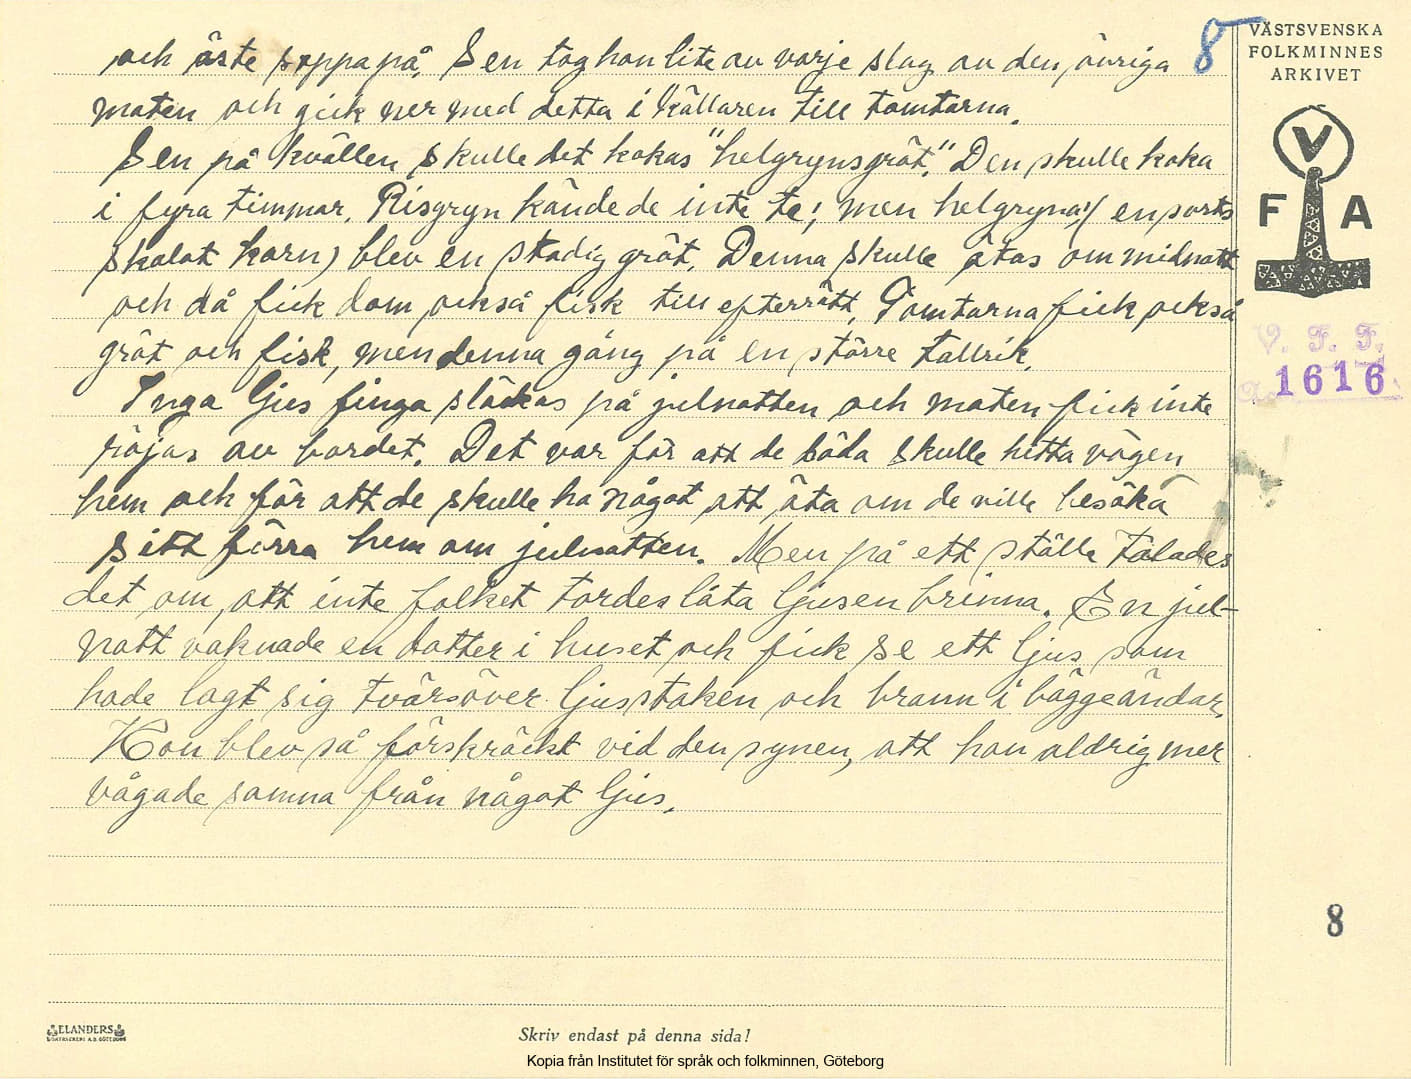 8
VÄSTSVENSKA
FOLKMINNES
ARKIVET
V
F A
V. F. F.
1616
och öste soppa på. Sen tog hon lite av varje slag av den övriga
maten och gick ner med detta i källaren till tomtarna.
Sen på kvällen skulle det kokas "helgrynsgröt". Den skulle koka
i fyra timmar. Risgryn kände de inte te; men helgryna; (en sorts
skalat korn) blev en stadig gröt. Denna skulle ätas om midnatt
och då fick dom också fisk till efterrätt. Tomtarna fick också
gröt och fisk, men denna gång på en större tallrik.
Inga ljus finga släckas på julnatten och maten fick inte
röjas av bordet. Det var för att de döda skulle hitta vägen
hem och för att de skulle ha något att äta om de ville besöka
sitt förra hem om julnatten. Men på ett ställe talades
det om, att inte folket tordes låta ljusen brinna. En jul-
natt vaknade en dotter i huset och fick se ett ljus som
hade lagt sig tvärsöver ljusstaken och brann i bägge ändar.
Hon blev så förskräckt vid den synen, att hon aldrig mer
vågade somna från något ljus.
8
ELANDERS
Skriv endast på denna sida!
Kopia från Institutet för språk och folkminnen, Göteborg